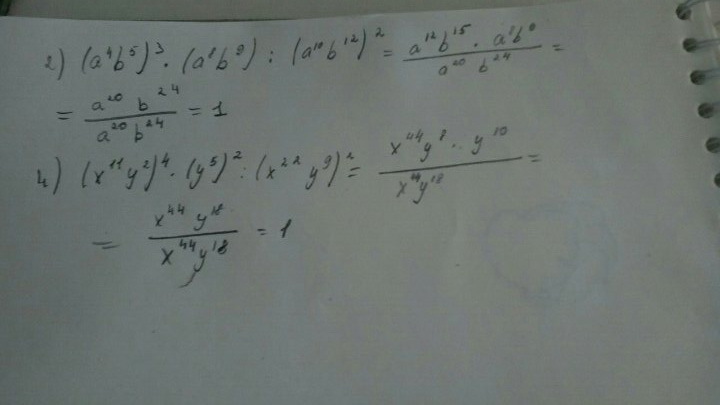 2) (a⁴b⁵)³ · (a⁸b⁹) : (a¹⁰b¹²)² = a¹²b¹⁵ · a⁸b⁹ / a²⁰ b²⁴ =
= a²⁰ b²⁴ / a²⁰ b²⁴ = 1
4) (x¹¹y²)⁴ · (y⁵)² : (x²²y⁹)² = x⁴⁴y⁸ · y¹⁰ / x⁴⁴y¹⁸ =
= x⁴⁴ y¹⁸ / x⁴⁴y¹⁸ = 1